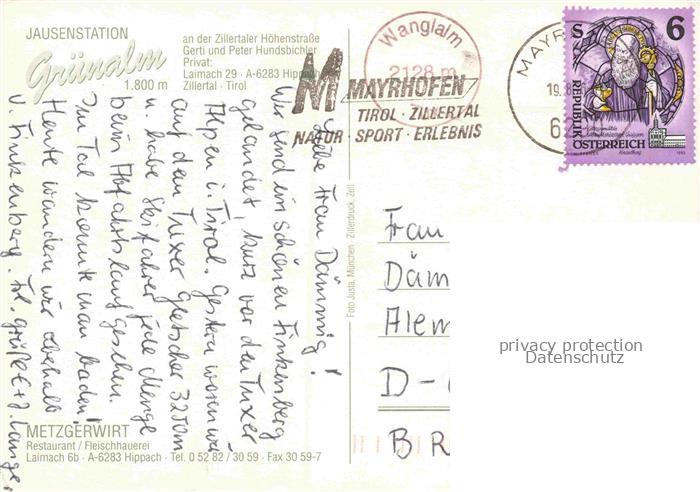 JAUSENSTATION
Grünalm
1.800 m
an der Zillertaler Höhenstraße
Gerti und Peter Hundsbichler
Privat:
Laimach 29 · A-6283 Hippach
Zillertal · Tirol
Wanglalm
2128 m
MAYRHOFEN
TIROL · ZILLERTAL
NATUR · SPORT · ERLEBNIS
MAYR
19. 8
62
S 6
REPUBLIK
ÖSTERREICH
Liebe Frau Dämmig!
Wir sind im schönen Finkenberg
gelandet, kurz vor den Tuxer
Alpen i. Tirol. Gestern waren wir
auf dem Tuxer Gletscher 3250m
u. habe Skifahrer jede Menge
beim Abfahrtslauf gesehen.
Im Tal konnte man baden!
Heute wandern wir oberhalb
v. Finkenberg. Frl. Grüße E+J. Lange.
Foto Justa, München · Zillerdruck, Zell
Frau
Däm
Alem
D-
BR
privacy protection
Datenschutz
METZGERWIRT
Restaurant / Fleischhauerei
Laimach 6b · A-6283 Hippach · Tel. 0 52 82 / 30 59 · Fax 30 59-7